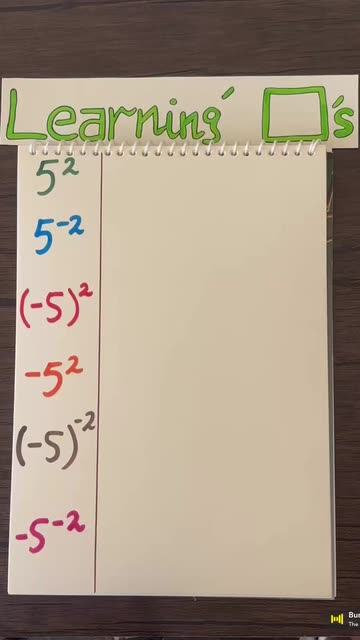 Learning' □'s
5²
5⁻²
(-5)²
-5²
(-5)⁻²
-5⁻²